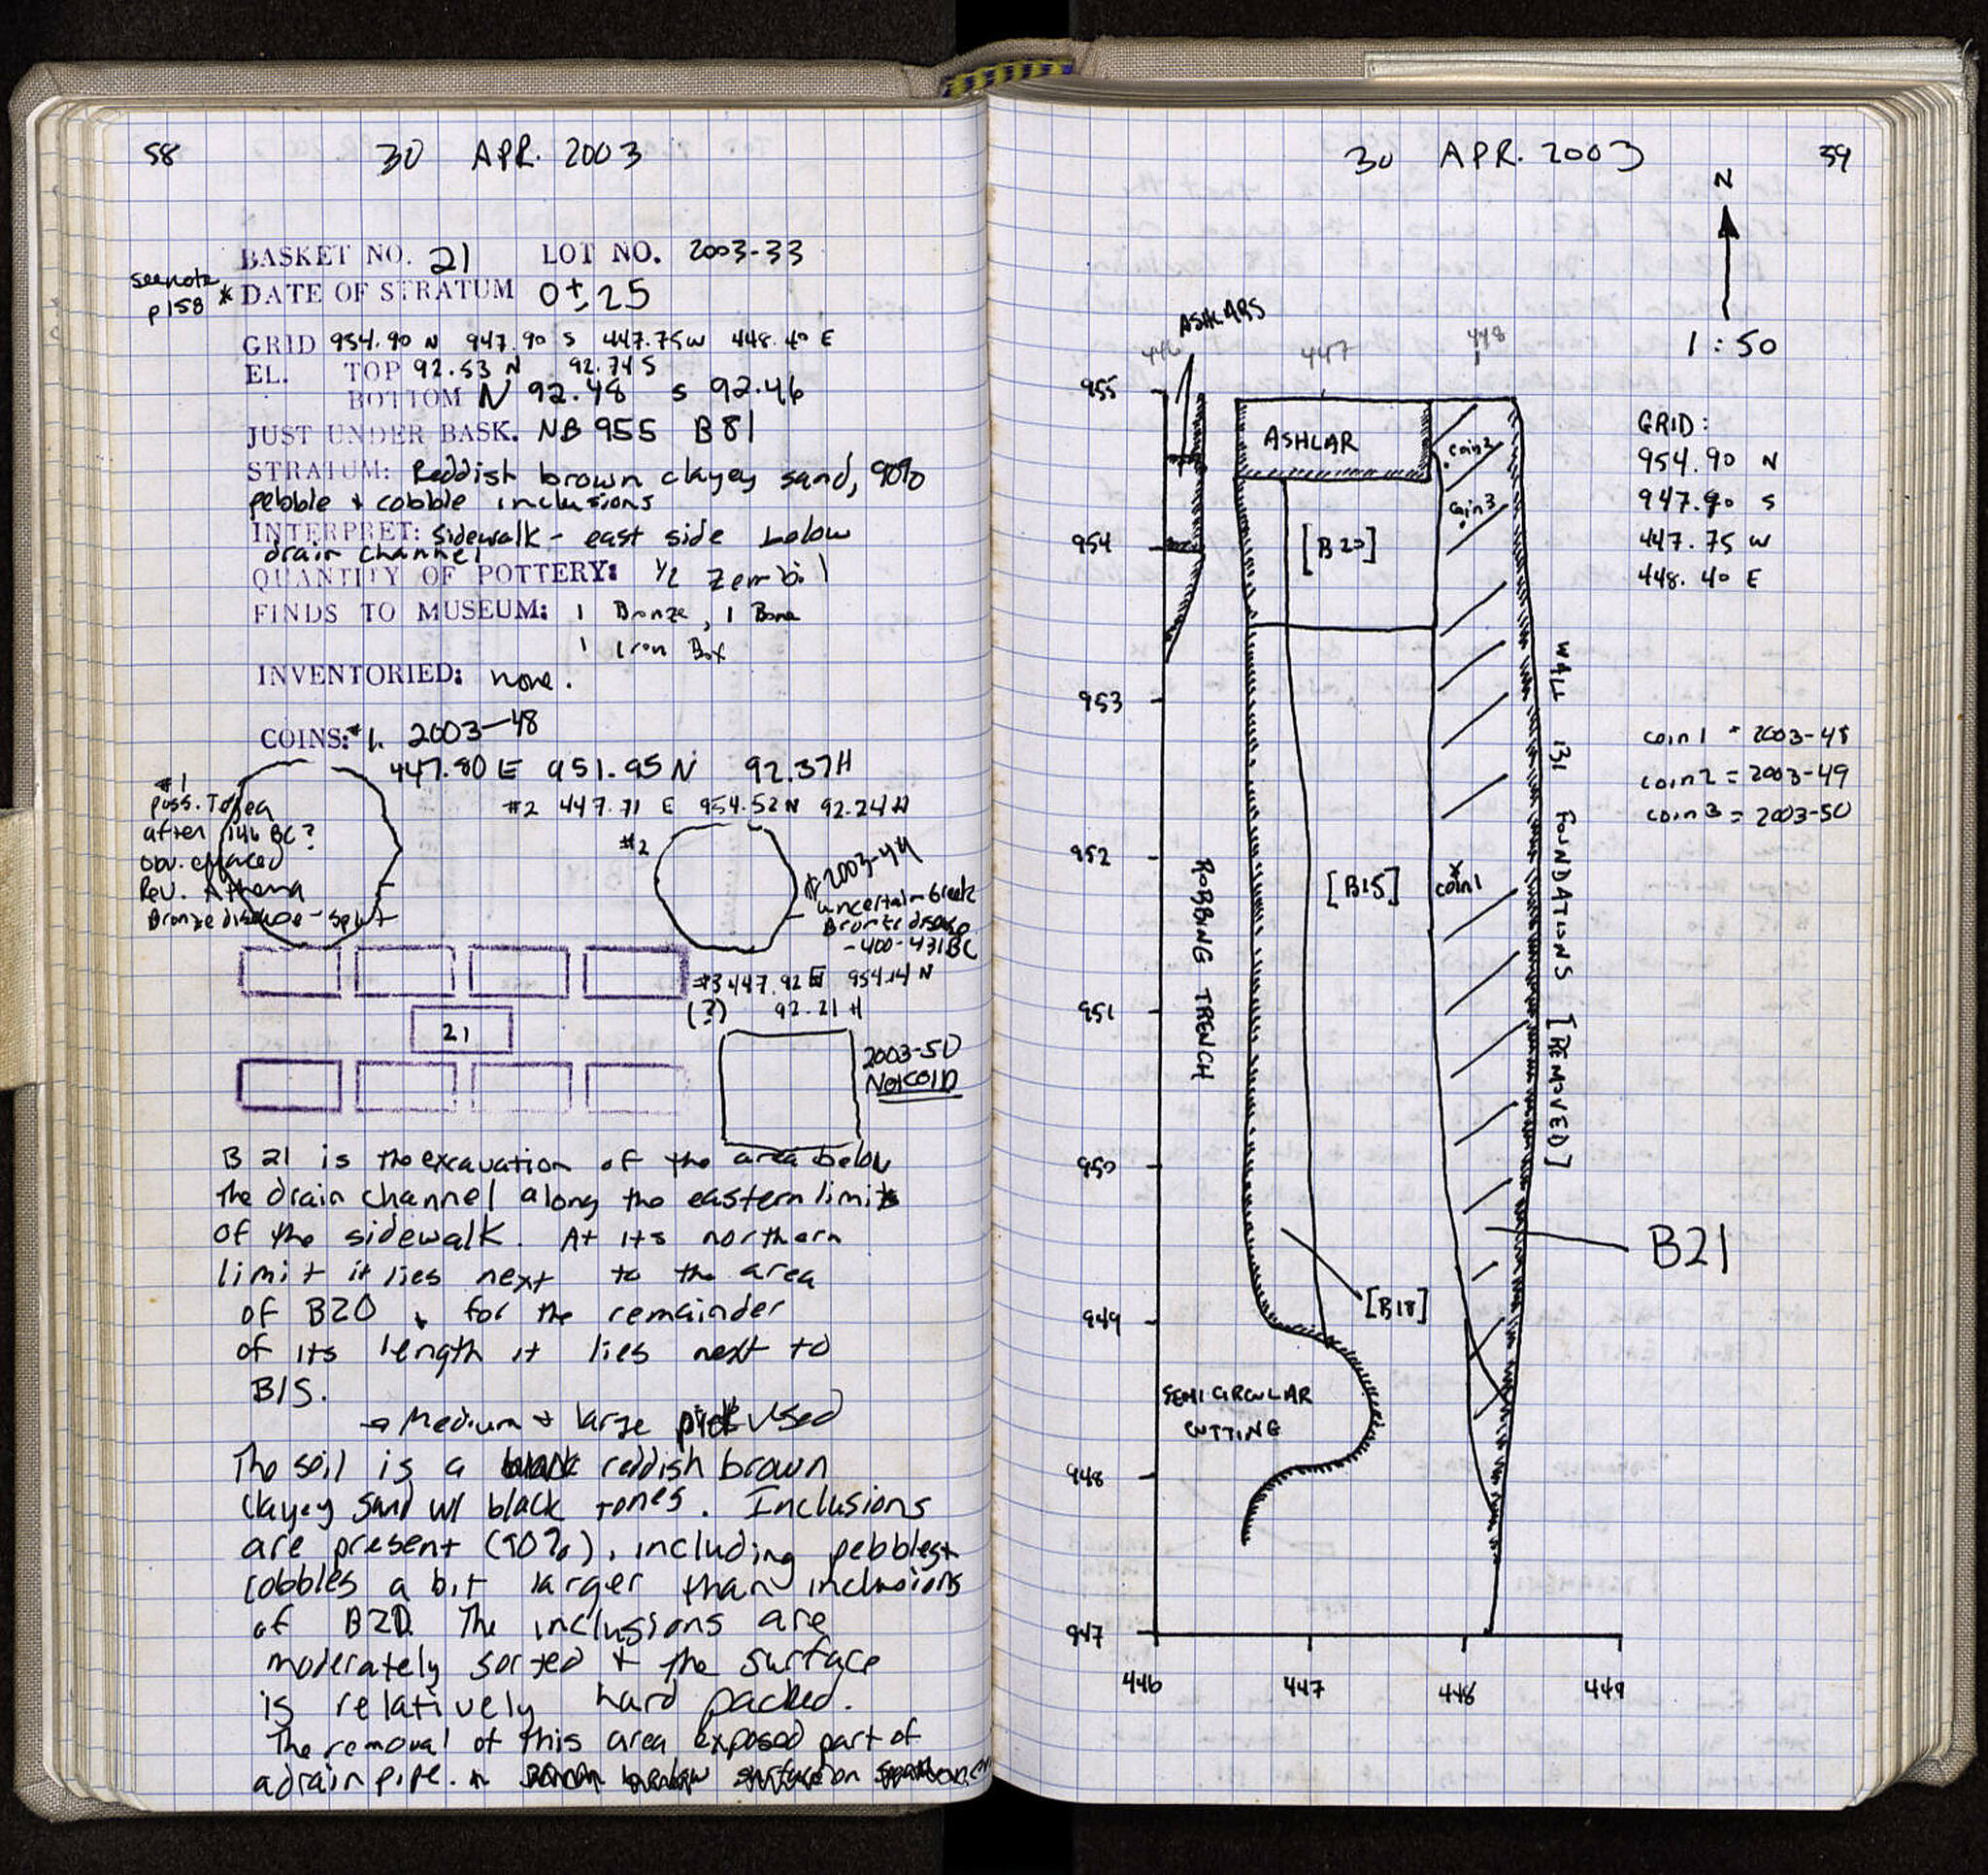 58
30 APR. 2003
BASKET NO. 21 LOT NO. 2003-33
see note
p158 * DATE OF STRATUM 0±25
GRID 954.90 N 947.90 S 447.75 W 448.40 E
EL. TOP 92.53 N 92.74 S
BOTTOM N 92.48 S 92.46
JUST UNDER BASK. NB 955 B81
STRATUM: Reddish brown clayey sand, 90%
pebble + cobble inclusions
INTERPRET: Sidewalk - east side below
drain channel
QUANTITY OF POTTERY: 1/2 Zembil
FINDS TO MUSEUM: 1 Bronze, 1 Bone
1 Iron Box
INVENTORIED: none.
COINS: #1. 2003-48
447.80 E 951.95 N 92.37H
#1
poss. Tegea
after 146 BC?
obv. effaced
Rev. Athena
Bronze disease - split
#2 447.71 E 954.52 N 92.24 H
#2
uncertain Greek
Bronze disease
-400-431 BC
#3 447.92 E 954.14 N
(?) 92.21 H
21
2003-50
Not COIN
B 21 is the excavation of the area below
the drain channel along the eastern limits
of the sidewalk. At its northern
limit it lies next to the area
of B20 + for the remainder
of its length it lies next to
B15.
→ Medium + large pick used
The soil is a reddish brown
clayey sand w/ black tones. Inclusions
are present (90%), including pebbles +
cobbles a bit larger than inclusions
of B20. The inclusions are
moderately sorted + the surface
is relatively hard packed.
The removal of this area exposed part of
a drain pipe.
30 APR. 2003
59
N
1 : 50
ASHLARS
446 447 448
955
954
953
952
951
950
949
948
947
446 447 448 449
ASHLAR
coin2
coin3
[B20]
[B15]
coin1
[B18]
B21
ROBBING TRENCH
SEMICIRCULAR
CUTTING
WALL 131 FOUNDATIONS [REMOVED]
GRID:
954.90 N
947.90 S
447.75 W
448.40 E
coin1 = 2003-48
coin2 = 2003-49
coin3 = 2003-50